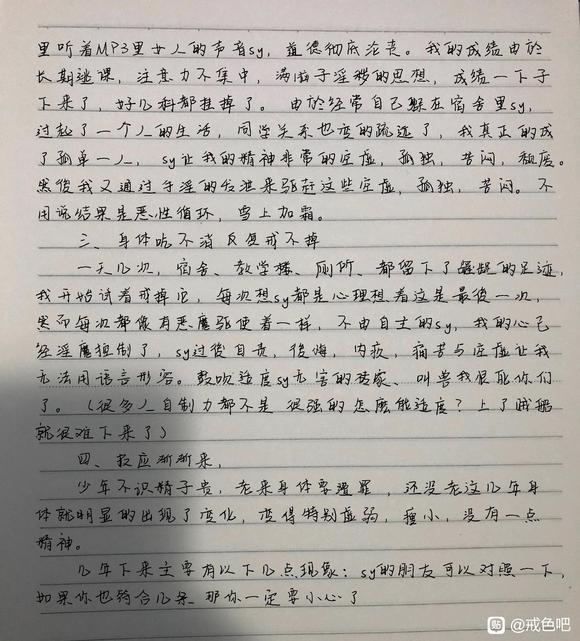 里听着MP3里女人的声音sy，道德彻底沦丧。我的成绩由於
长期逃课，注意力不集中，满脑子淫秽的思想，成绩一下子
下来了，好几科都挂掉了。由於经常自己躲在宿舍里sy，
过起了一个人的生活，同学关系也变的疏远了，我真正的成
了孤单一人，sy让我的精神非常的空虚，孤独，苦闷，颓废。
然後我又通过手淫的发泄来驱赶这些空虚，孤独，苦闷。不
用说结果是恶性循环，雪上加霜。
三、身体吃不消 反复戒不掉
一天几次，宿舍、教学楼、厕所、都留下了龌龊的足迹，
我开始试着戒掉它，每次想sy都是心理想着这是最後一次，
然而每次都像有恶魔驱使着一样，不由自主的sy，我的心已
经淫魔独制了，sy过後自责，後悔，内疚，痛苦与空虚让我
无法用语言形容。鼓吹适度sy无害的砖家、叫兽我恨死你们
了。（很多人自制力都不是很强的怎麽能适度？上了贼船
就很难下来了）
四、报应渐渐来，
少年不识精子贵，老来身体要遭罪，还没老这几年身
体就明显的出现了变化，变得特别虚弱，瘦小，没有一点
精神。
几年下来主要有以下几点现象：sy的朋友可以对照一下，
如果你也符合几条 那你一定要小心了
贴 @戒色吧